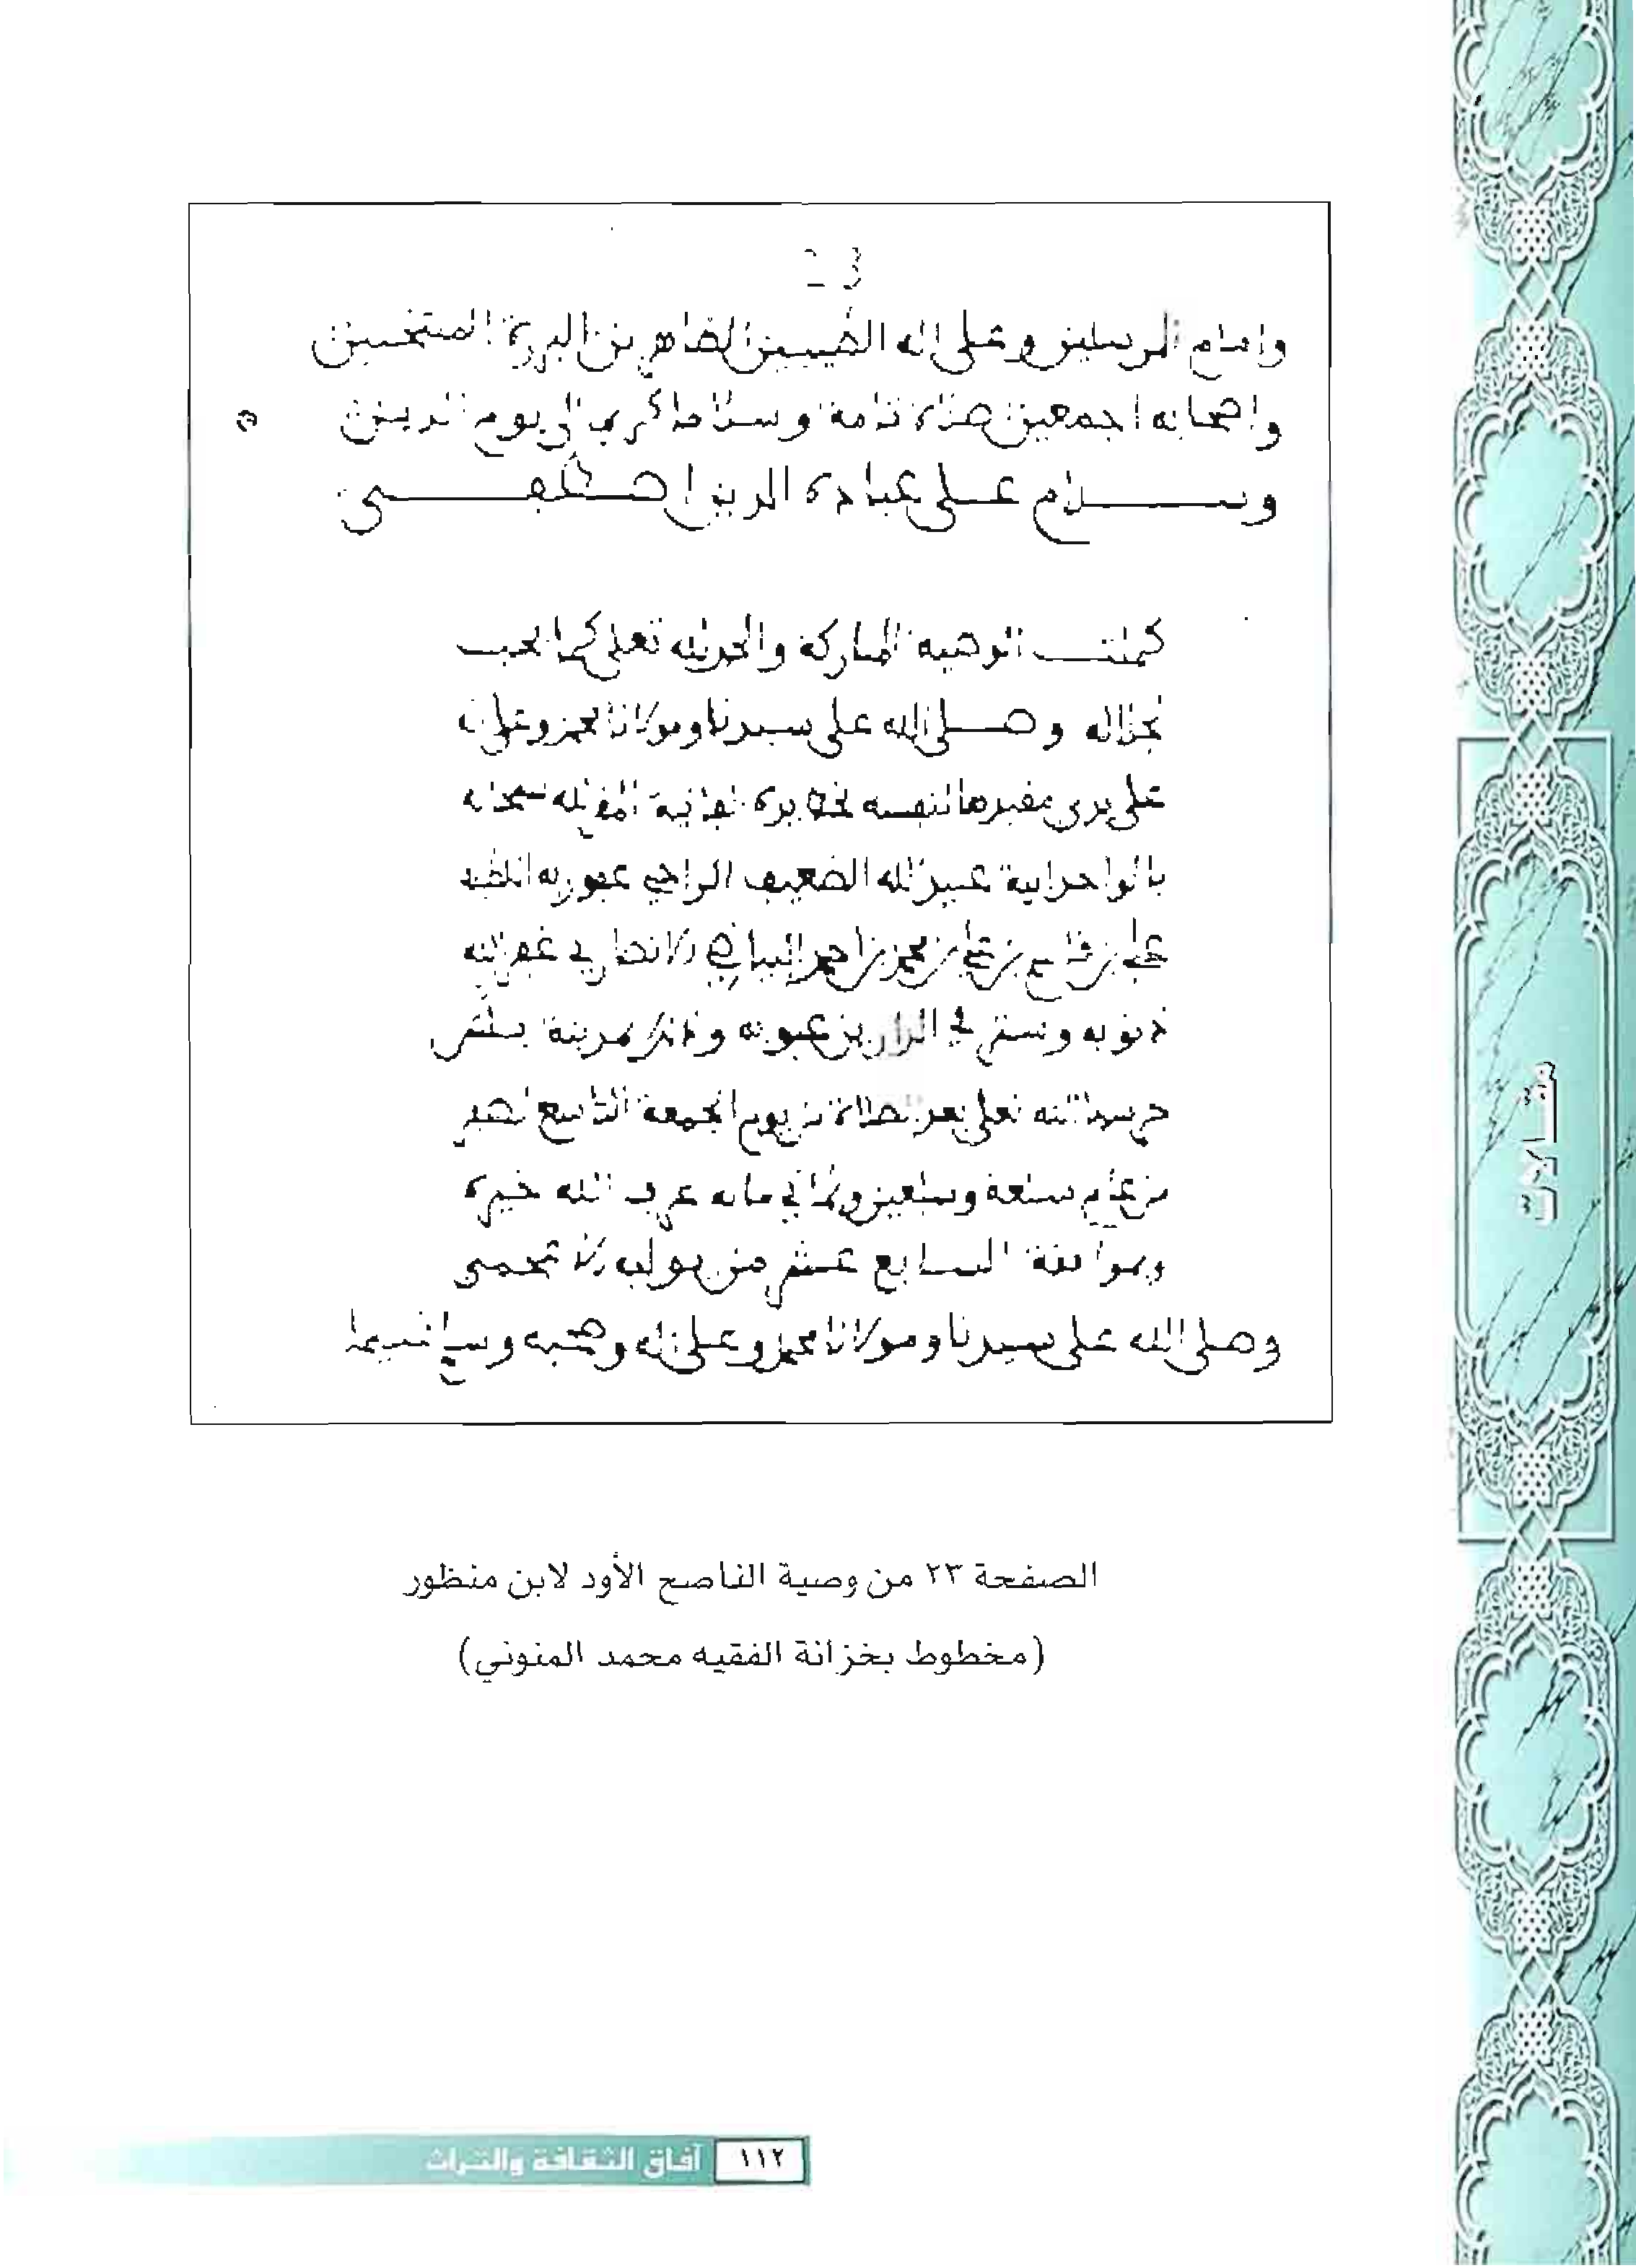 23
وامام المرسلين وعلى اله الطيبين الطاهرين البررة المنتخبين
واصحابه اجمعين صلاة تامة وسلاما كريما الى يوم الدين
وسلام على عباده الذين اصطفى
كملت الوصية المباركة والحمد لله تعلى كما يجب
لجلاله وصلى الله على سيدنا ومولانا محمد وعلى اله
على يدي مقيدها لنفسه بخط يده الفانية المقر لله سبحانه
بالواحدانية عبيد الله الضعيف الراجي عفو ربه اللطيف
علي بن قاسم بن علي بن محمد بن احمد البياضي الانصاري غفر الله
ذنوبه وستر في الدارين عيوبه وذلك بمدينة بلش
حرسها الله تعلى بعد الصلاة من يوم الجمعة التاسع لصفر
من عام سبعة وسبعين وثماني مائه عرف الله خيره
وبموافقة السابع عشر من يوليه الاعجمي
وصلى الله على سيدنا ومولانا محمد وعلى اله وصحبه وسلم تسليما
الصفحة ٢٣ من وصية الناصح الأود لابن منظور
(مخطوط بخزانة الفقيه محمد المنوني)
مقالات
١١٢ آفاق الثقافة والتراث